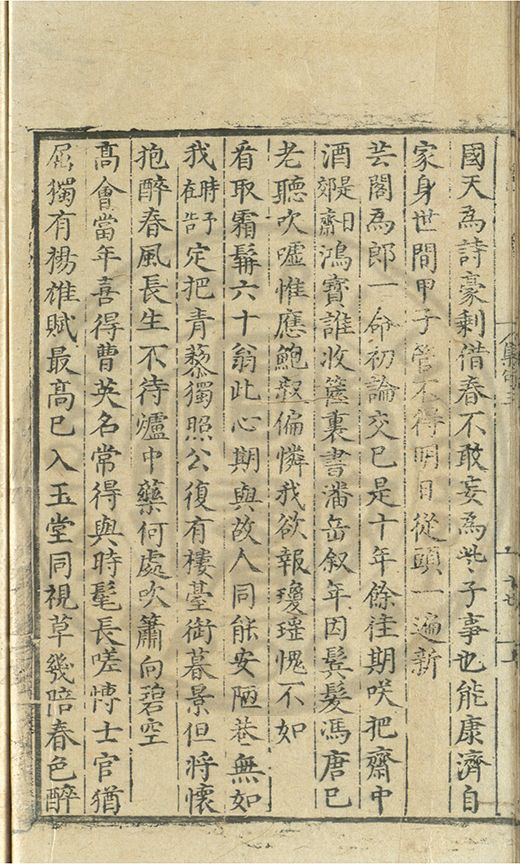 國天為詩豪剩借春不敢妄為些子事也能康濟自
家身世間甲子管不得明日從頭一遍新
芸閣為郎一命初論交已是十年餘往期咲把齋中
酒是日郊齋鴻寶誰收篋裏書潘岳叙年因鬂髮馮唐已
老聽吹噓惟應鮑叔偏憐我欲報瓊瑤愧不如
看取霜髯六十翁此心期與故人同能安陋巷無如
我時予在告定把青藜獨照公復有樓臺銜暮景但將懷
抱醉春風長生不待爐中藥何處吹簫向碧空
高會當年喜得曹英名常得與時髦長嗟博士官猶
屈獨有楊雄賦最高已入玉堂同視草幾陪春色醉